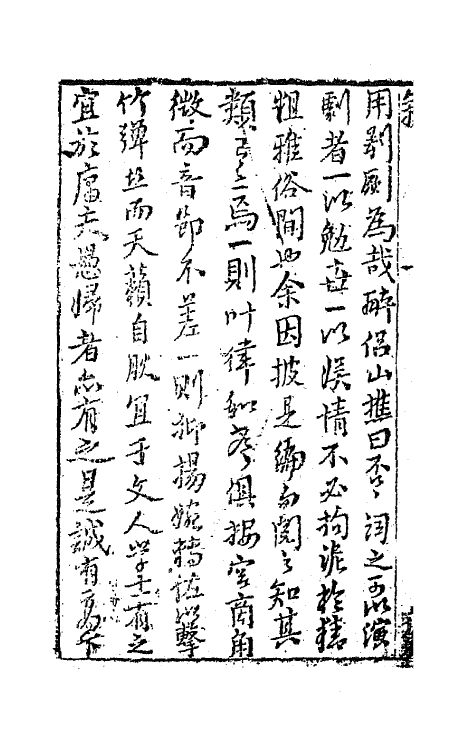 用剞劂為哉醉侶山樵曰否否詞之可以演
劇者一以勉世一以娛情不必拘泥於精
粗雅俗間也余因披是編而閱之知其
類有二焉一則叶律和聲俱按宮商角
徵而音節不差一則抑揚婉轉詎必擊
竹彈絲而天籟自耽宜于文人學士有之
宜於愚夫愚婦者亦有之是誠有高下